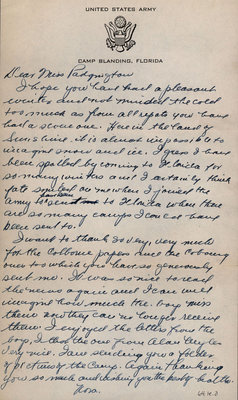 UNITED STATES ARMY
CAMP BLANDING, FLORIDA
Dear Miss Padgington
I hope you have had a pleasant
winter and not minded the cold
too much as from all reports you have
had a severe one. Here in the land of
Sunshine it is almost impossible to
imagine snow and ice. I guess I have
been spoiled by coming to Florida for
so many winters and I certainly think
fate smiled on me when I joined the
army to have been sent to Florida when there
are so many camps I could have
been sent to.
I want to thank you very, very much
for the
papers and the
ones to which you have so generously
sent me. It was so nice to read
the news again and I can well
imagine how much the boys miss
them now they can no longer receive
them. I enjoyed the letters from the
boys, I thot the one from Alan
very nice. I am sending you a folder
of pictures of the Camp. Again thanking
you so much and wishing you the best of health.